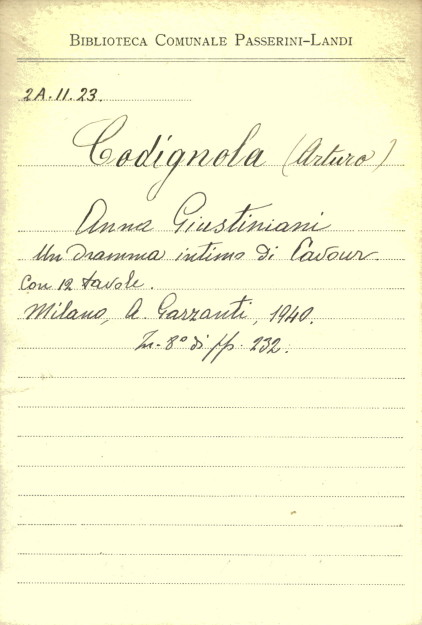 BIBLIOTECA COMUNALE PASSERINI-LANDI
2A.11.23.
Codignola (Arturo)
Anna Giustiniani
Un dramma intimo di Cavour
Con 12 tavole.
Milano, A. Garzanti, 1940.
In-8° di pp. 232.